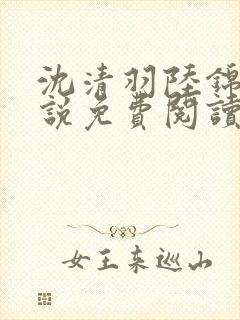 沈清羽陸錦
說免費閱讀
女王來巡山